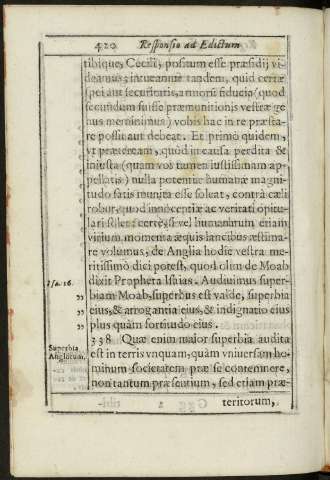 420 Responsio ad Edictum
tibique, Cecili, positum esse præsidij vi-
deamus; intueamur tandem, quid certæ
spei aut securitatis, armorũ fiducia (quod
secundum fuisse præmunitionis vestræ ge
nus meminimus) vobis hac in re præsta-
re possit aut debeat. Et primò quidem,
vt præteream, quòd in causa perdita &
iniusta (quam vos tamen iustissimam ap-
pellatis) nulla potentiæ humanæ magni-
tudo satis munita esse soleat, contrà cæli
robur, quod innocentiæ ac veritati opitu-
lari solet: certè, si vel humanarum etiam
virium momenta æquis lancibus æstima-
re volumus, de Anglia hodie vestra me-
ritissimò dici potest, quod olim de Moab
Isa. 16. dixit Propheta Isaias. Audiuimus super-
„ biam Moab, superbus est valde, superbia
„ eius, & arrogantia eius, & indignatio eius
„ plus quàm fortitudo eius.
338 Quæ enim maior superbia audita
Superbia est in terris vnquam, quàm vniuersam ho-
Anglorum. minum societatem præ se contemnere,
non tantum præsentium, sed etiam præ-
teritorum,